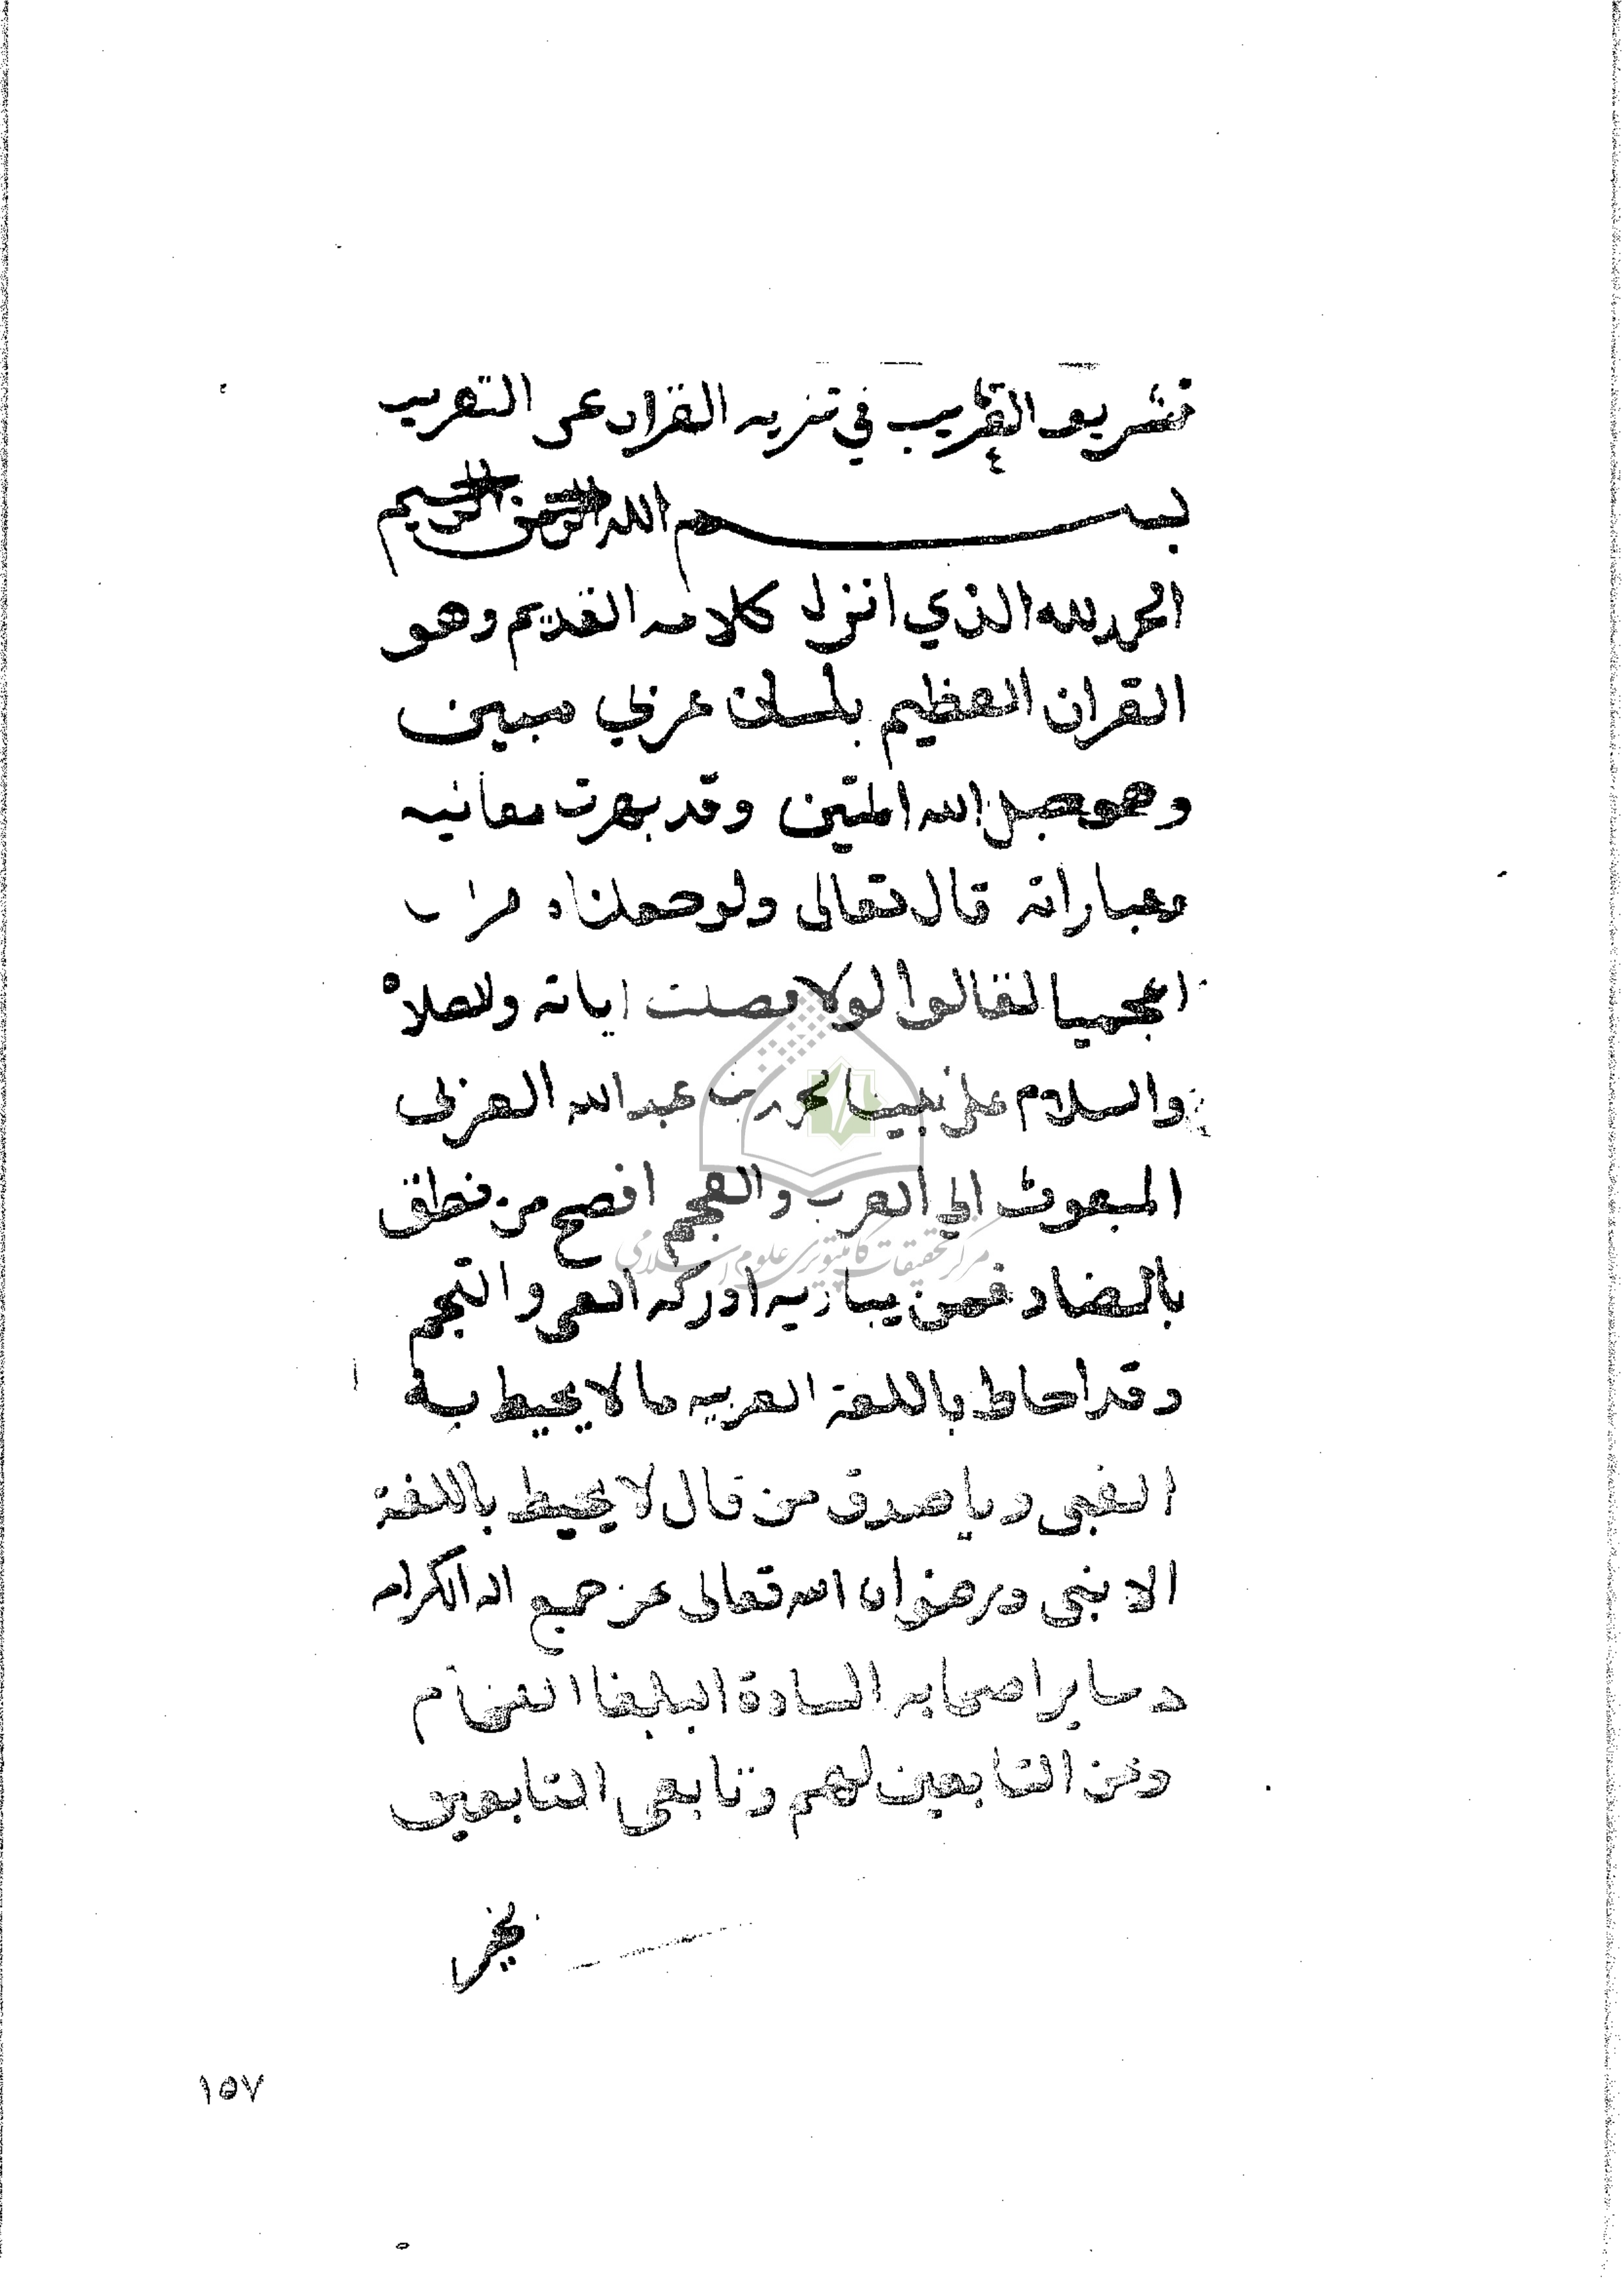 تشريف القريب في تنزيه القران عن التعريب
بسم الله الرحمن الرحيم
الحمد لله الذي انزل كلامه القديم وهو
القران العظيم بلسان عربي مبين
وهو حبل الله المتين وقد بهرت معانيه
وعباراته قال تعالى ولو جعلناه
اعجميا لقالوا لولا فصلت اياته والصلاه
والسلام على نبينا محمد بن عبد الله العربى
المبعوث الي العرب والعجم افصح من نطق
بالضاد فمن يباريه ادركه العى و
وقد احاط باللغة العربيه ما لا يحيط به
الغبى ويا صدق من قال لا يحيط باللغة
الا نبى ورضوان الله تعالى عن جميع اله الكرام
وساير اصحابه السادة البلغا الفخام
وعن التابعين لهم وتابعى التابعين
بخير
مركز تحقيقات كامپيوترى علوم اسلامى
١٥٧